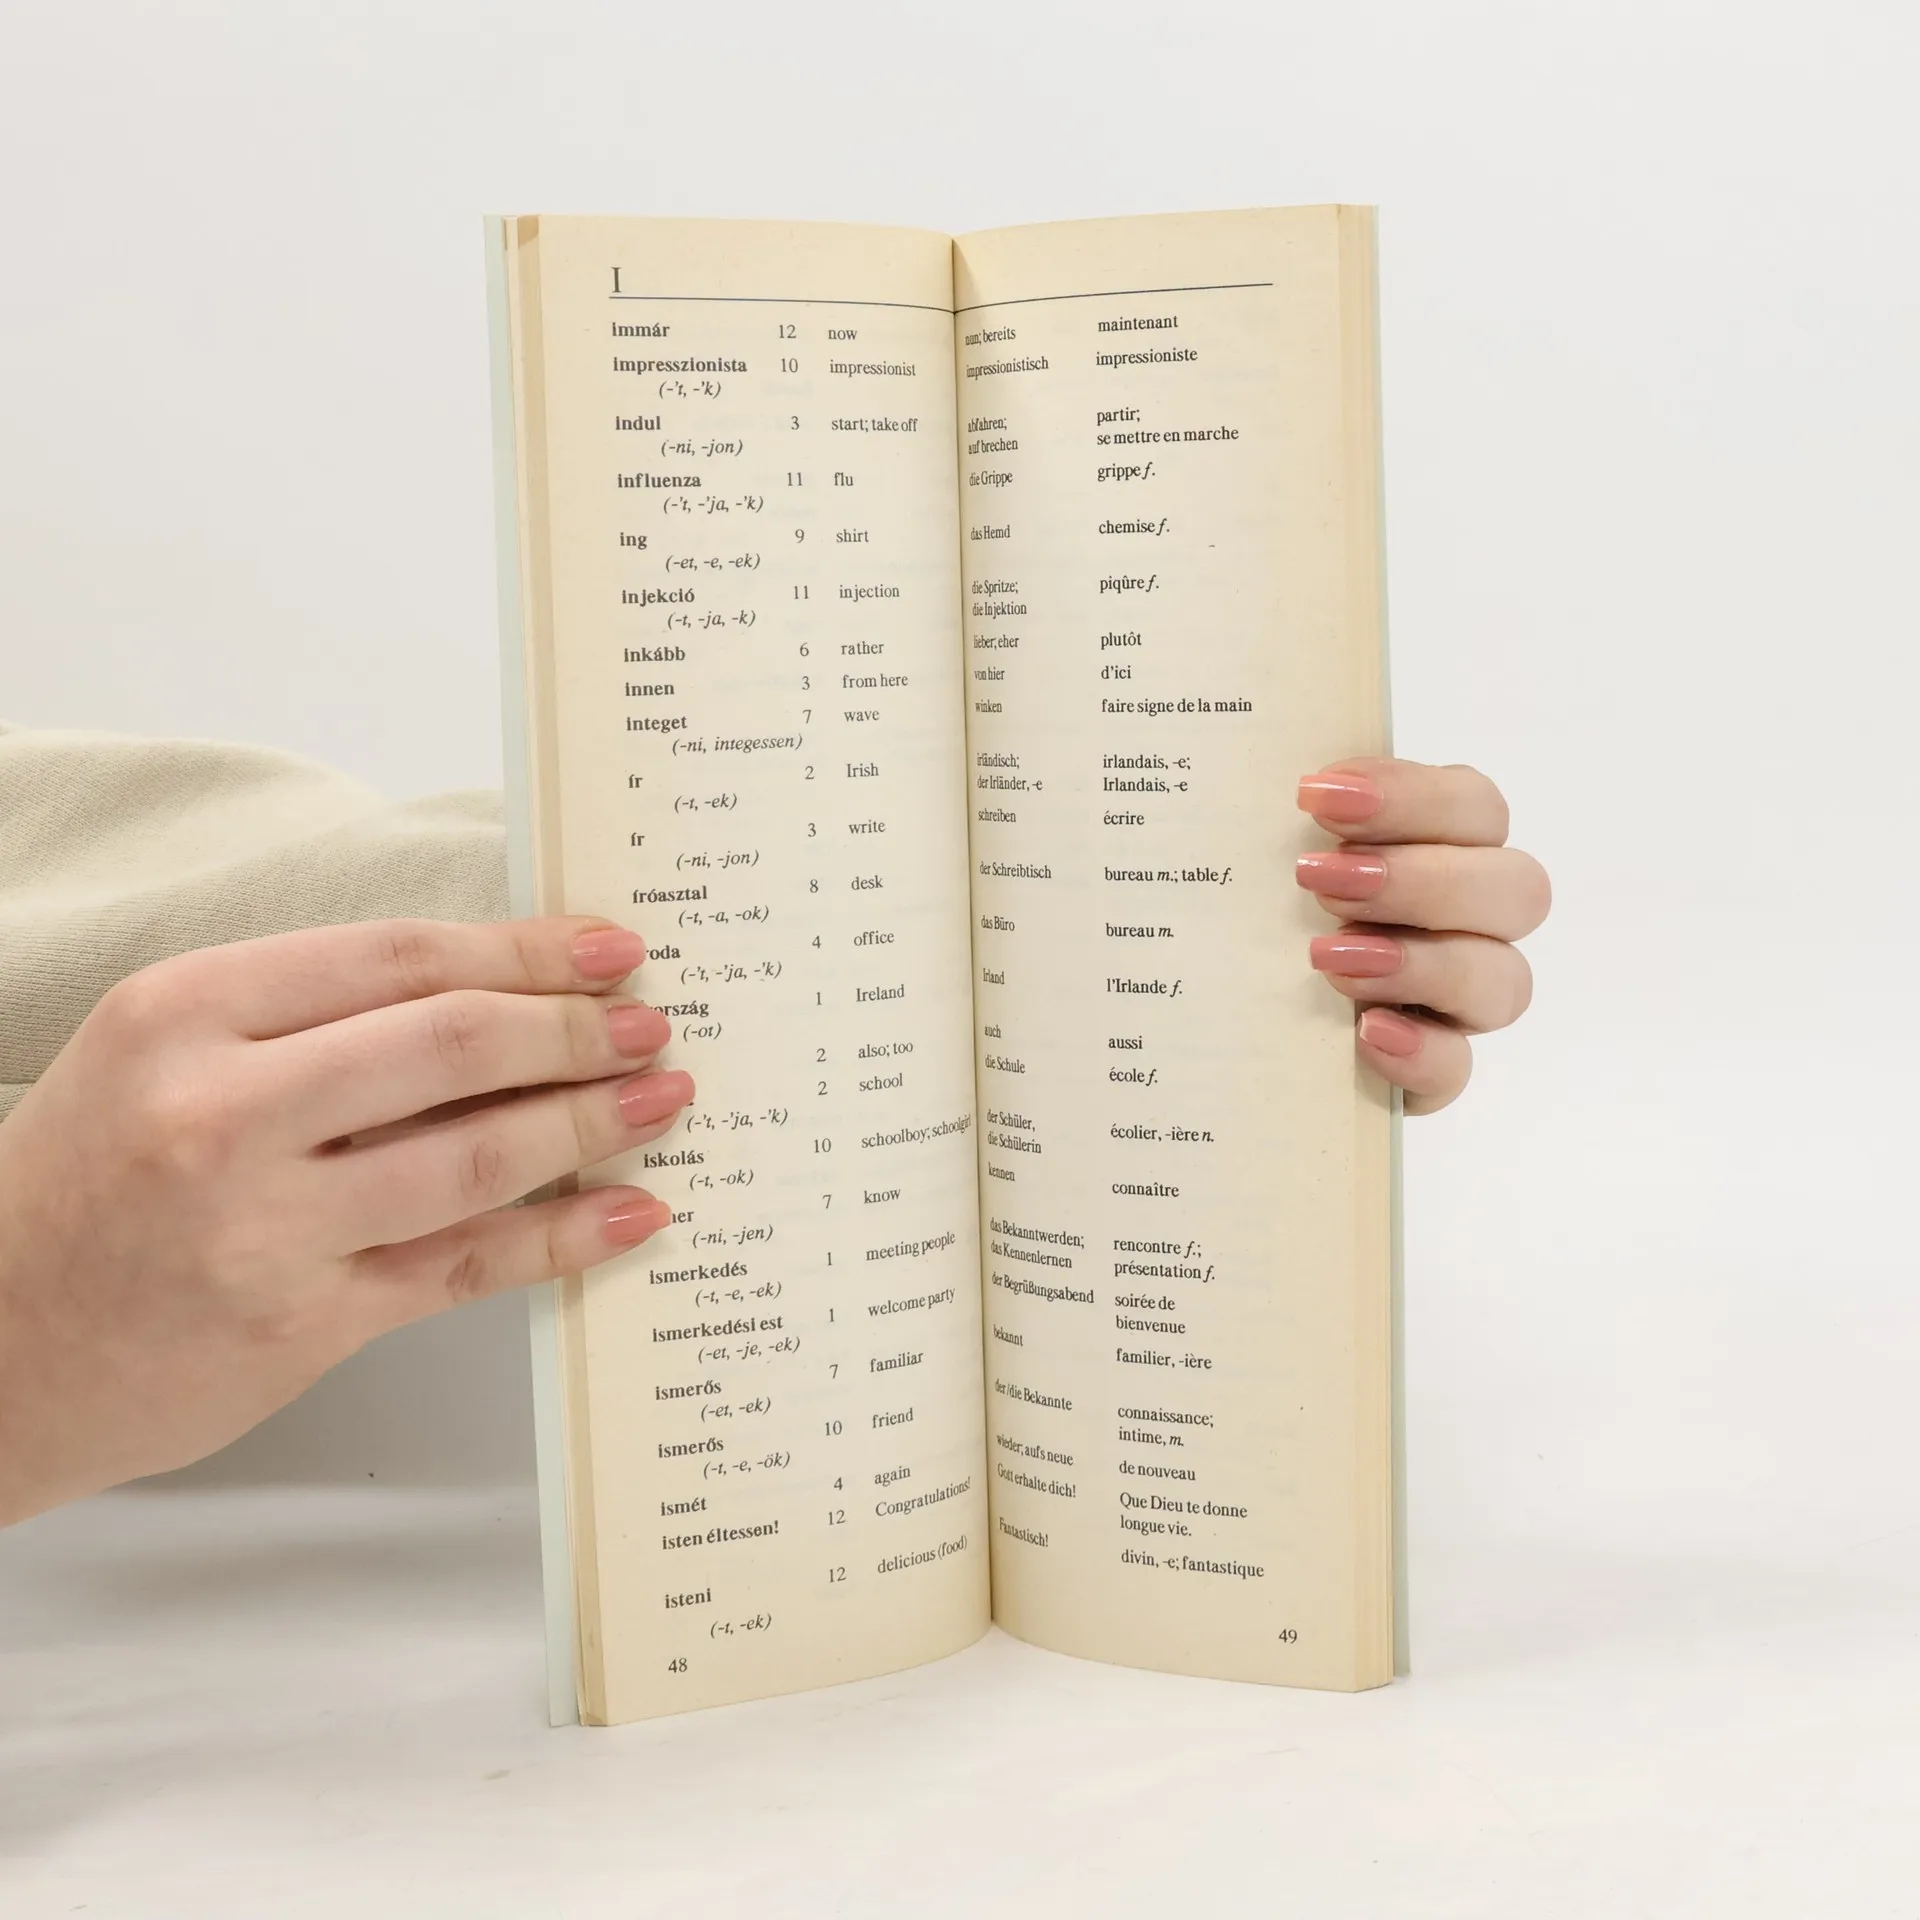 I
immár 12 now nun; bereits maintenant
impresszionista 10 impressionist impressionistisch impressioniste
(-'t, -'k)
indul 3 start; take off abfahren; partir;
(-ni, -jon) aufbrechen se mettre en marche
influenza 11 flu die Grippe grippe f.
(-'t, -'ja, -'k)
ing 9 shirt das Hemd chemise f.
(-et, -e, -ek)
injekció 11 injection die Spritze; piqûre f.
(-t, -ja, -k) die Injektion
inkább 6 rather lieber; eher plutôt
innen 3 from here von hier d'ici
integet 7 wave winken faire signe de la main
(-ni, integessen)
ír 2 Irish irländisch; irlandais, -e;
(-t, -ek) der Irländer, -e Irlandais, -e
ír 3 write schreiben écrire
(-ni, -jon)
íróasztal 8 desk der Schreibtisch bureau m.; table f.
(-t, -a, -ok)
roda 4 office das Büro bureau m.
(-'t, -'ja, -'k)
ország 1 Ireland Irland l'Irlande f.
(-ot)
2 also; too auch aussi
2 school die Schule école f.
(-'t, -'ja, -'k)
iskolás 10 schoolboy; schoolgirl der Schüler, écolier, -ière n.
(-t, -ok) die Schülerin
er 7 know kennen connaître
(-ni, -jen)
ismerkedés 1 meeting people das Bekanntwerden; rencontre f.;
(-t, -e, -ek) das Kennenlernen présentation f.
ismerkedési est 1 welcome party der Begrüßungsabend soirée de
(-et, -je, -ek) bienvenue
ismerős 7 familiar bekannt familier, -ière
(-et, -ek)
ismerős 10 friend der/die Bekannte connaissance;
(-t, -e, -ök) intime, m.
ismét 4 again wieder; aufs neue de nouveau
isten éltessen! 12 Congratulations! Gott erhalte dich! Que Dieu te donne
longue vie.
isteni 12 delicious (food) Fantastisch! divin, -e; fantastique
(-t, -ek)
48 49